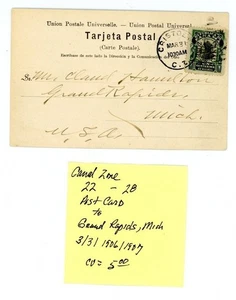 Union Postale Universelle. — Union Postal Universal.
Tarjeta Postal
(Carte Postale)
Escríbase de este lado la Dirección y la Comunicación
CRISTOBAL
MAR 31
10 30 AM
C. Z.
Mr Claud Hamilton
Grand Rapids,
Mich.
U. S. A.
Canal Zone
22 - 28
Post Card
to
Grand Rapids, Mich
3/31 1906/1907
cv = 5.00